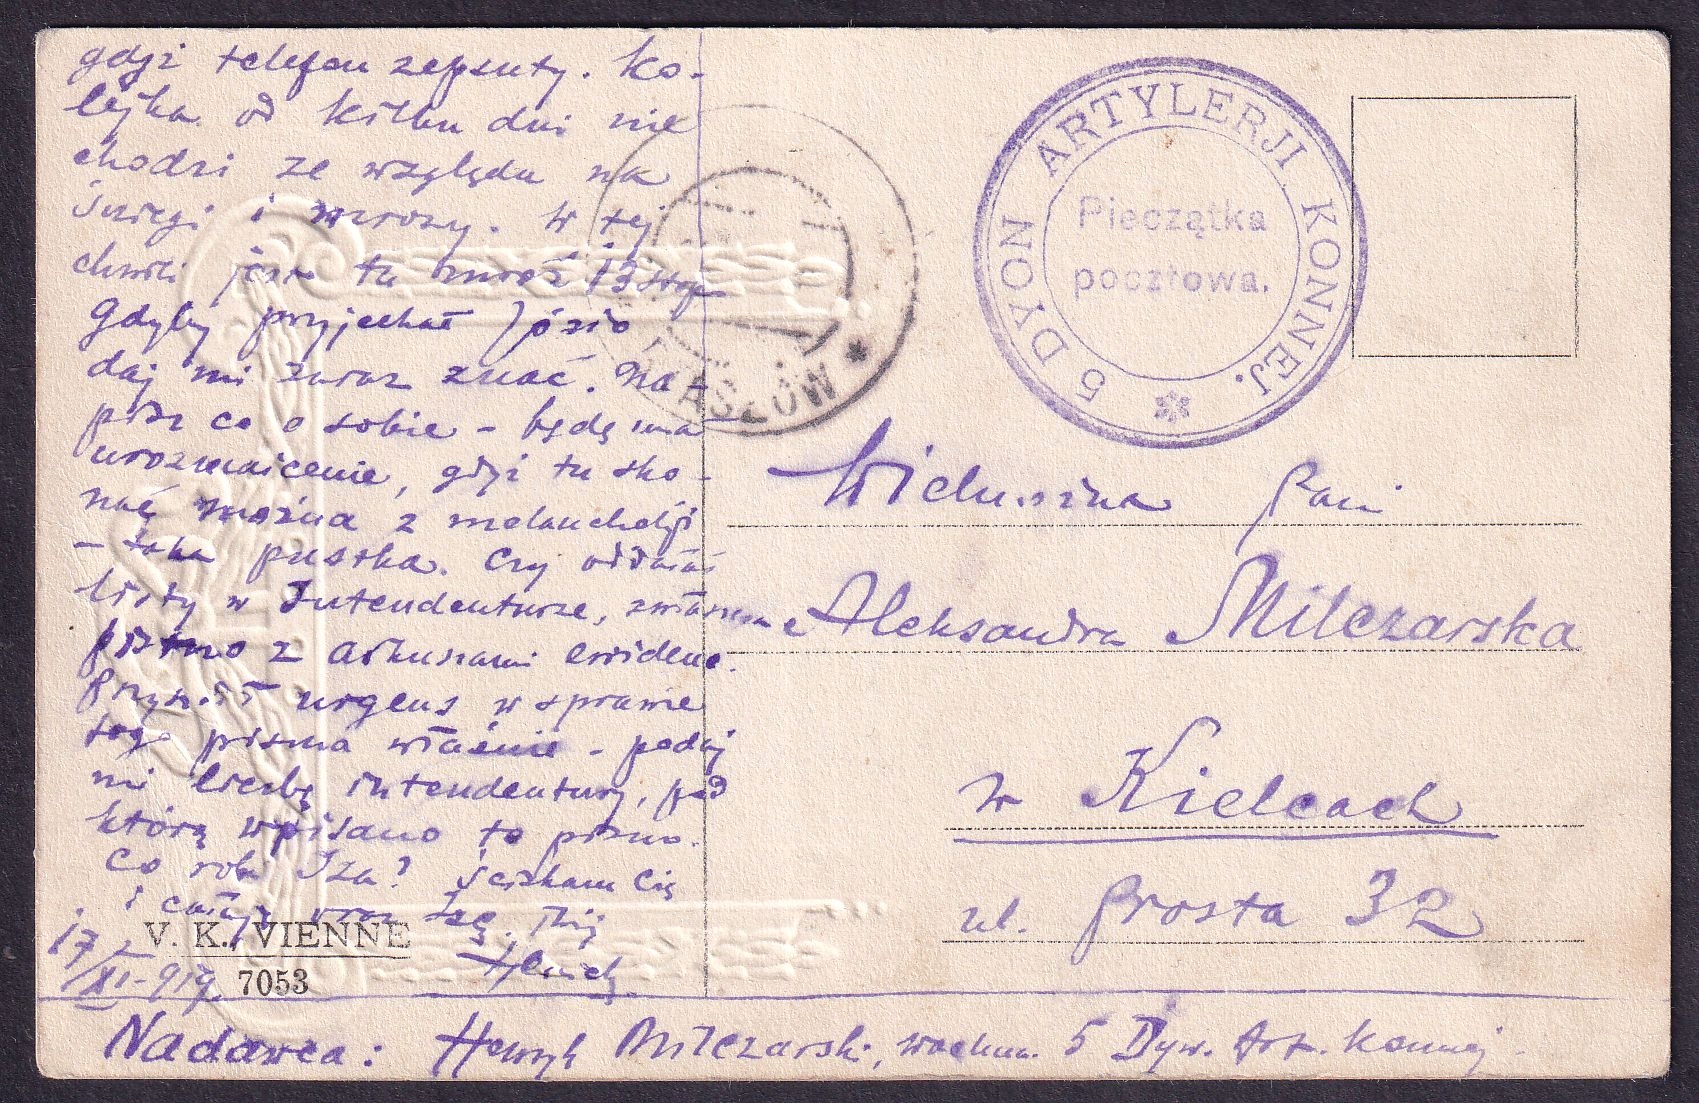 gdyż telefon zepsuty. Ko-
lejka od kilku dni nie
chodzi ze względu na
śniegi i mrozy. W tej
chwili jest tu mróz 13 stop
Gdyby przyjechał Józio
daj mi zaraz znać. Na-
pisz co o sobie - będę ma
urozmaicenie, gdyż tu sko-
nać można z melancholji
- taka pustka. Czy oddałaś
listy w Intendenturze, zwłaszcza
pismo z arkuszami ewidenc.
Przyszedł urgens w sprawie
tego pisma właśnie - podaj
mi liczbę intendentury, pod
którą wpisano to pismo.
Co robi Iza? Ściskam Cię
i całuję wraz Izę. Twój
Henryk
17/XI-919.
V. K., VIENNE
7053
ASZÓW *
5 DYON ARTYLERJI KONNEJ.
Pieczątka
pocztowa.
Wielmożna Pani
Aleksandra Milczarska
w Kielcach
ul. Prosta 32
Nadawca: Henryk Milczarski, wachm. 5 Dyw. Art. Konnej.